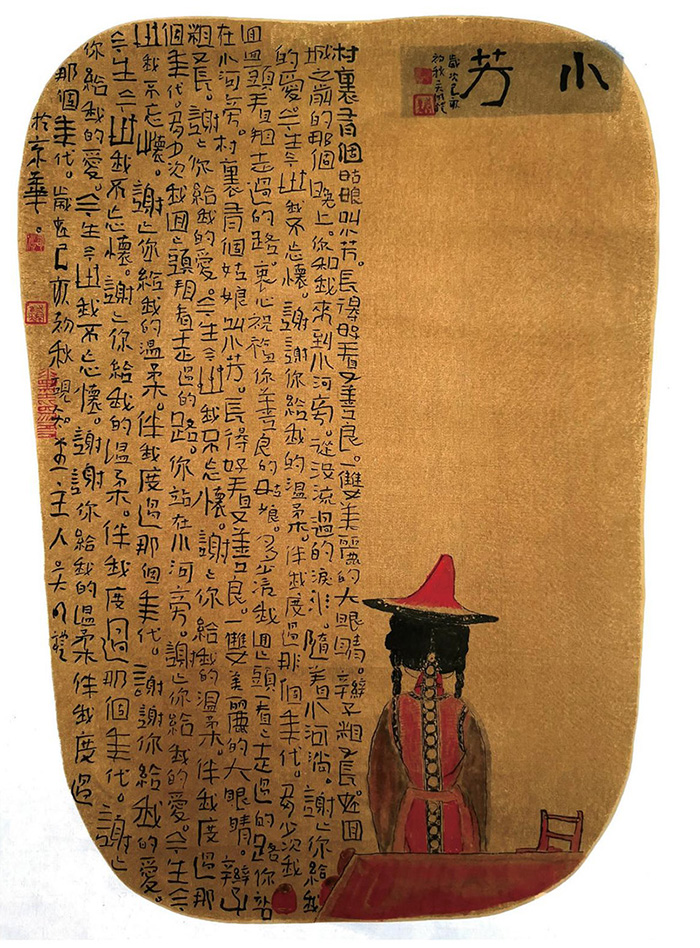 小芳
歲次己亥
初秋
村裏有個姑娘叫小芳。長得好看又善良。一雙美麗的大眼睛。辮子粗又長。在回
城之前的那個晚上。你和我來到小河旁。從沒流過的淚水。隨着小河淌。謝〻你給我
的愛。今生今世我不忘懷。謝謝你給我的溫柔。伴我度過那個年代。多少次我
回回頭看看走過的路。衷心祝福你善良的姑娘。多少次我回〻頭看〻走過的路你站
在小河旁。村裏有個姑娘叫小芳。長得好看又善良。一雙美麗的大眼睛。辮子
粗又長。謝〻你給我的愛。今生今世我不忘懷。謝〻你給我的溫柔。伴我度過那
個年代。多少次我回〻頭看看走過的路。你站在小河旁。謝〻你給我的愛。今生今
世我不忘懷。謝〻你給我的溫柔。伴我度過那個年代。謝謝你給我的愛。
今生今世我不忘懷。謝〻你給我的溫柔。伴我度過那個年代。謝〻
你給我的愛。今生今世我不忘懷。謝謝你給我的溫柔伴我度過
那個年代。歲在己亥初秋主人天明
於京華。